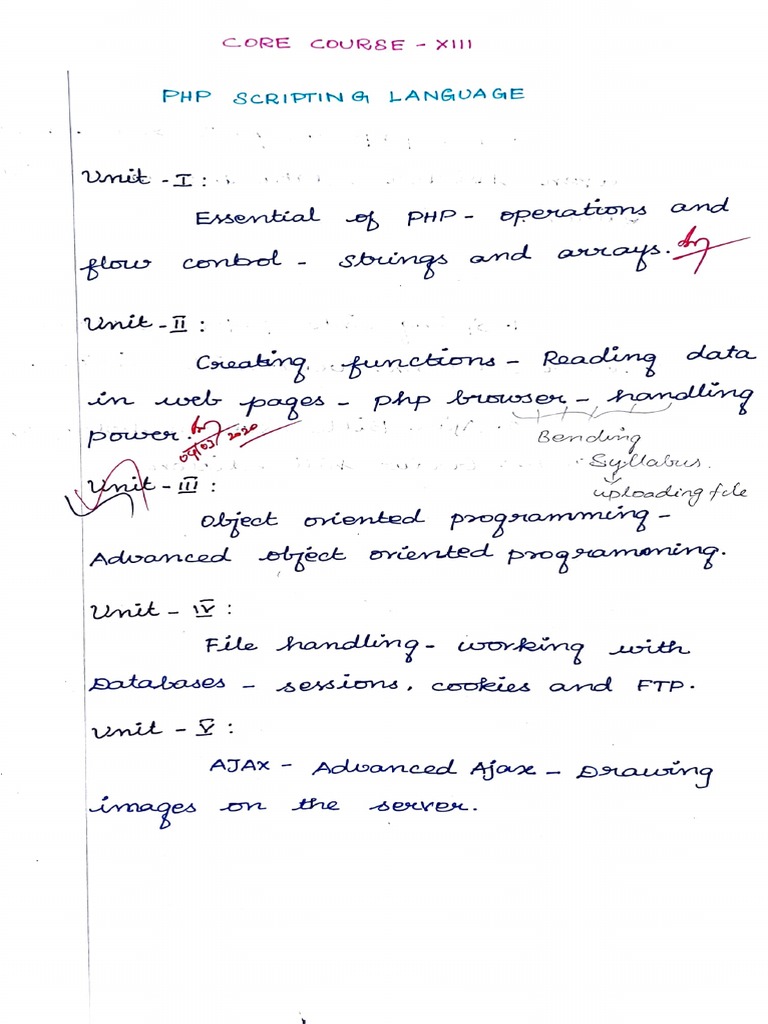 CORE COURSE - XIII
PHP SCRIPTING LANGUAGE
Unit - I :
Essential of PHP - operations and
flow control - strings and arrays.
Unit - II :
Creating functions - Reading data
in web pages - php browser - handling
power.
04/03/2020
Bending
Syllabus.
uploading file
Unit - III :
Object oriented programming -
Advanced object oriented programming.
Unit - IV :
File handling - working with
Databases - sessions, cookies and FTP.
Unit - V :
AJAX - Advanced Ajax - Drawing
images on the server.